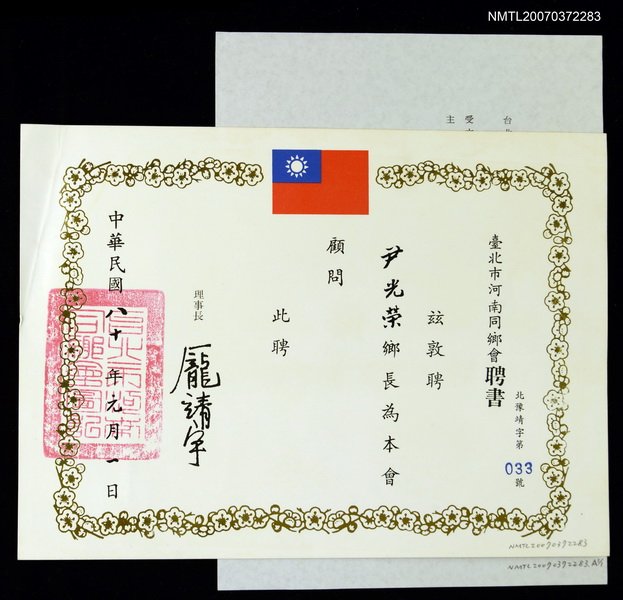 NMTL20070372283
台北
受文
主
臺北市河南同鄉會聘書
北豫靖字第033號
茲敦聘
尹光榮鄉長為本會
顧問
此聘
理事長
龐靖宇
中華民國八十年元月一日
NMTL20070372283
NMTL20070372283.A1/1